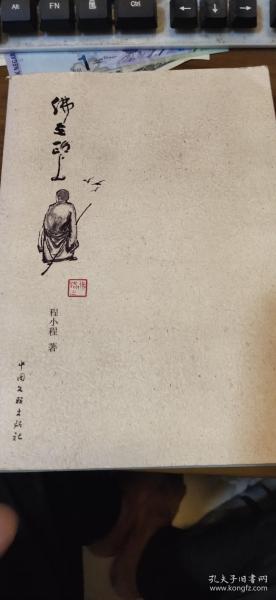 Alt
FN
Ctrl
佛在路上
程小程 著
中国文联出版社
孔夫子旧书网
www.kongfz.com